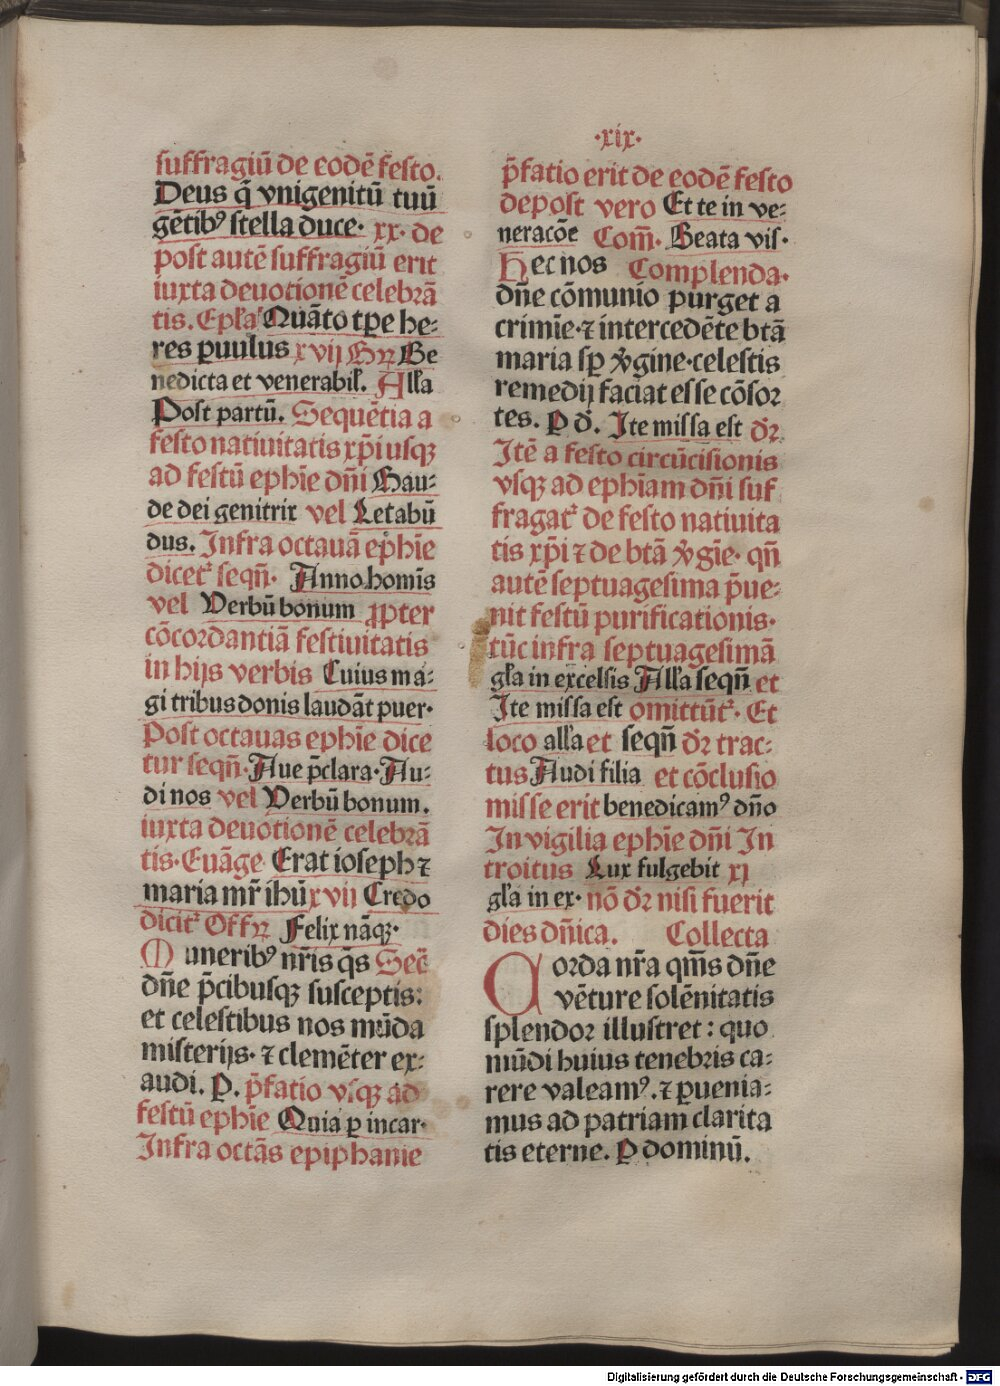 ·xix·
suffragiū de eodē festo.
Deus q̄ vnigenitū tuū
gētibꝰ stella duce· xx· de
post autē suffragiū erit
iuxta deuotionē celebrā
tis. Ep̄la Quāto tp̄e he⸗
res ꝑuulus xvij Gꝝ Be
nedicta et venerabil̄. All̄a
Post partū. Sequētia a
festo natiuitatis xp̄i usqꝫ
ad festū ephīe dn̄i Gau⸗
de dei genitrix vel Letabū
dus. Infra octauā ephīe
dicetᷣ seqn̄· Anno hominis
vel Verbū bonum ꝓpter
cōcordantiā festiuitatis
in hijs verbis Cuius ma⸗
gi tribus donis laudāt puer·
Post octauas ephīe dice
tur seqn̄· Aue p̄clara· Au⸗
di nos vel Verbū bonum.
iuxta deuotionē celebrā
tis· Euāge Erat ioseph ⁊
maria mr̄ ihū xvij Credo
dicitᷣ Offꝝ Felix nāqꝫ·
Muneribꝰ nr̄is q̄s Sec̄
dn̄e p̄cibusqꝫ susceptis:
et celestibus nos mūda
misterijs· ⁊ clemēter ex⸗
audi. P. p̄fatio vsqꝫ ad
festū ephīe Quia ꝑ incar·
Infra octās epiphanie
p̄fatio erit de eodē festo
depost vero Et te in ve⸗
neracōe Com̄. Beata vis·
Hec nos Complenda·
dn̄e cōmunio purget a
crimīe· ⁊ intercedēte btā
maria sꝑ v̄gine· celestis
remedij faciat esse cōsor
tes. P d̄. Ite missa est dr̄
Itē a festo circūcisionis
vsqꝫ ad ephīam dn̄i suf
fragatᷣ de festo natiuita
tis xp̄i ⁊ de btā v̄gīe· qn̄
autē septuagesima p̄ue⸗
nit festū purificationis·
tūc infra septuagesimā
gl̄a in excelsis All̄a seqn̄ et
Ite missa est omittūtᷣ· Et
loco all̄a et seqn̄ dr̄ trac⸗
tus Audi filia et cōclusio
misse erit benedicamꝰ dn̄o
In vigilia ephīe dn̄i In
troitus Lux fulgebit xj
gl̄a in ex· nō dr̄ nisi fuerit
dies dn̄ica. Collecta
Corda nr̄a qm̄s dn̄e
vēture solēnitatis
splendor illustret: quo
mūdi huius tenebris ca⸗
rere valeamꝰ. ⁊ ꝑuenia⸗
mus ad patriam clarita
tis eterne. P dominū.
Digitalisierung gefördert durch die Deutsche Forschungsgemeinschaft - DFG